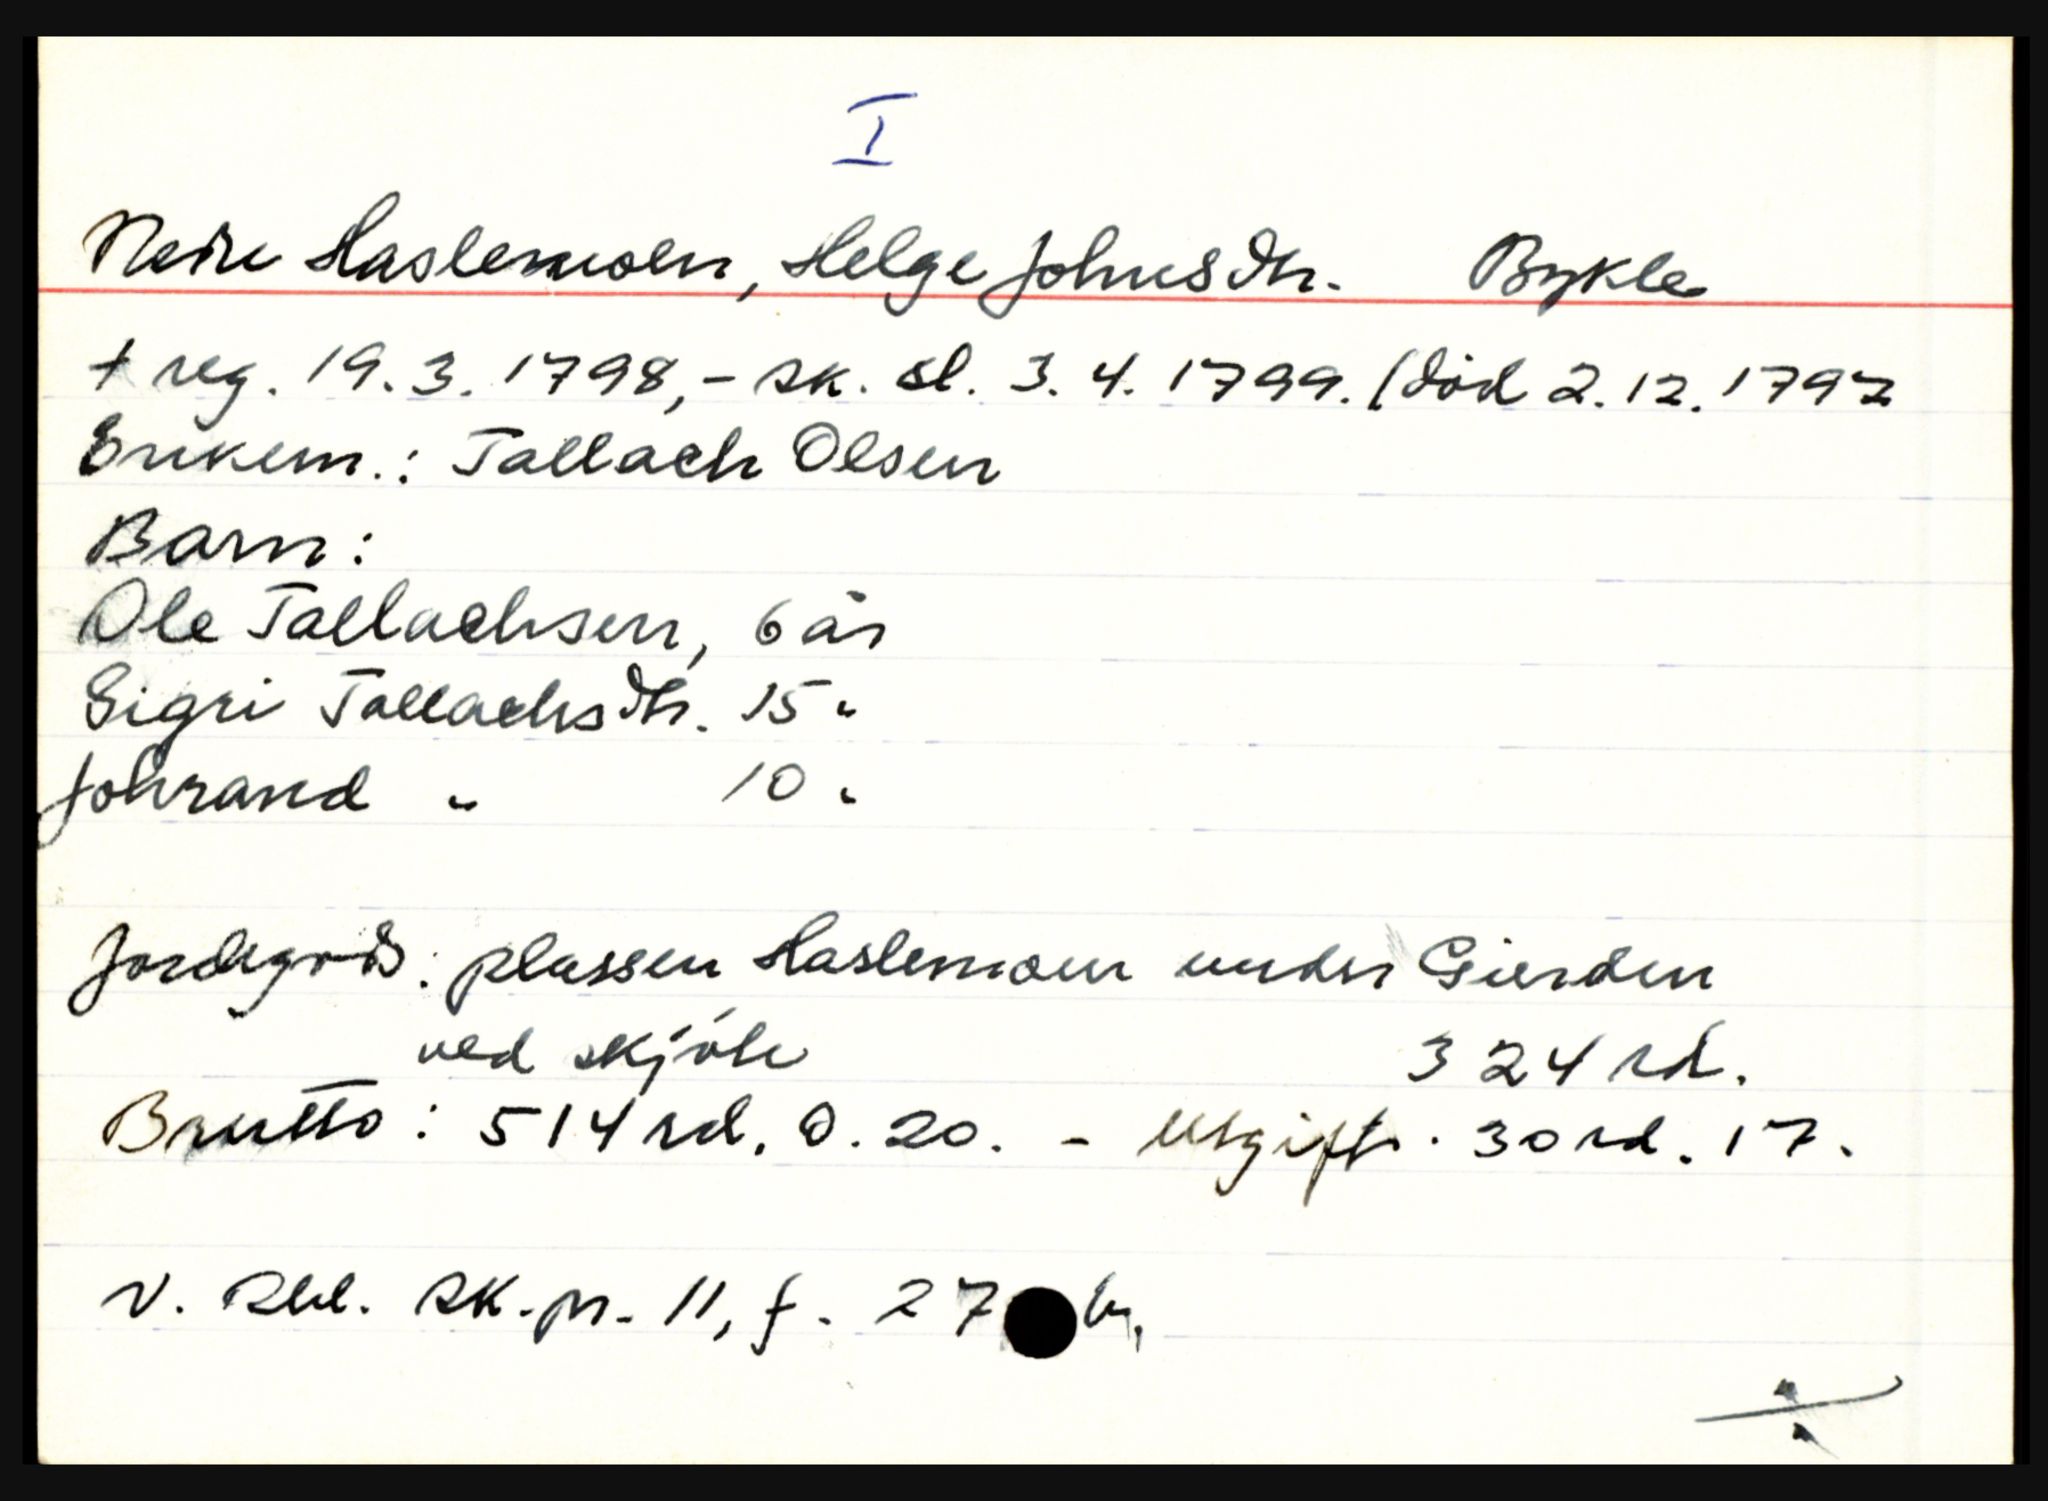 I
Nedre Haslemoen, Helge Johnsdtr. Bykle
† reg. 19.3.1798, - sk. sl. 3.4.1799. (död 2.12.1797
Enkem.: Tallach Olsen
Barn:
Ole Tallachsen, 6 år
Sigri Tallachsdtr. 15 "
Johrand " 10 "
Jordegods: plassen Haslemoen under Gierden
ved skjöte 324 rd.
Brutto: 514 rd. 0. 20. - Utgift. 30 rd. 17.
V. Rbl. sk.pr. 11, f. 27 b.